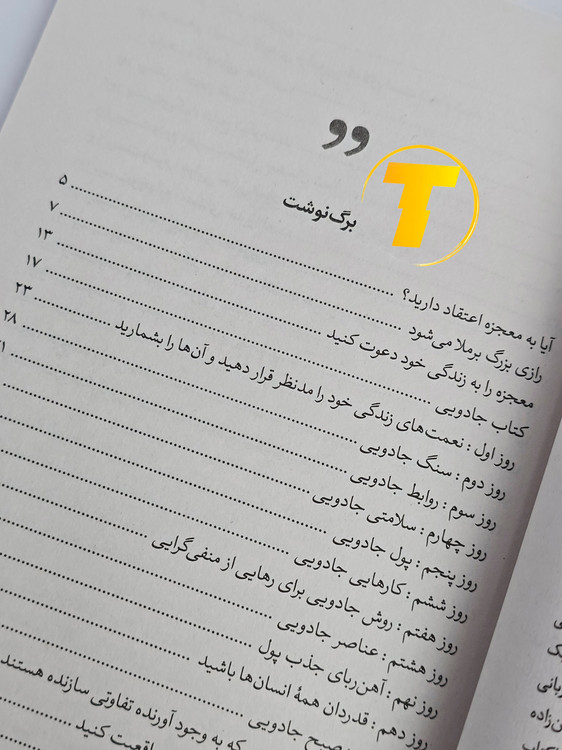 ”
T
برگ‌نوشت
آیا به معجزه اعتقاد دارید؟ ۵
رازی بزرگ برملا می‌شود ۷
معجزه را به زندگی خود دعوت کنید ۱۳
کتاب جادویی ۱۷
روز اول : نعمت‌های زندگی خود را مدنظر قرار دهید و آن‌ها را بشمارید ۲۳
روز دوم : سنگ جادویی ۲۸
روز سوم : روابط جادویی
روز چهارم : سلامتی جادویی
روز پنجم : پول جادویی
روز ششم : کارهایی جادویی
روز هفتم : روش جادویی برای رهایی از منفی‌گرایی
روز هشتم : عناصر جادویی
روز نهم : آهن‌ربای جذب پول
روز دهم : قدردان همهٔ انسان‌ها باشید
صبح جادویی
که به وجود آورنده تفاوتی سازنده هستند
واقعیت کنید